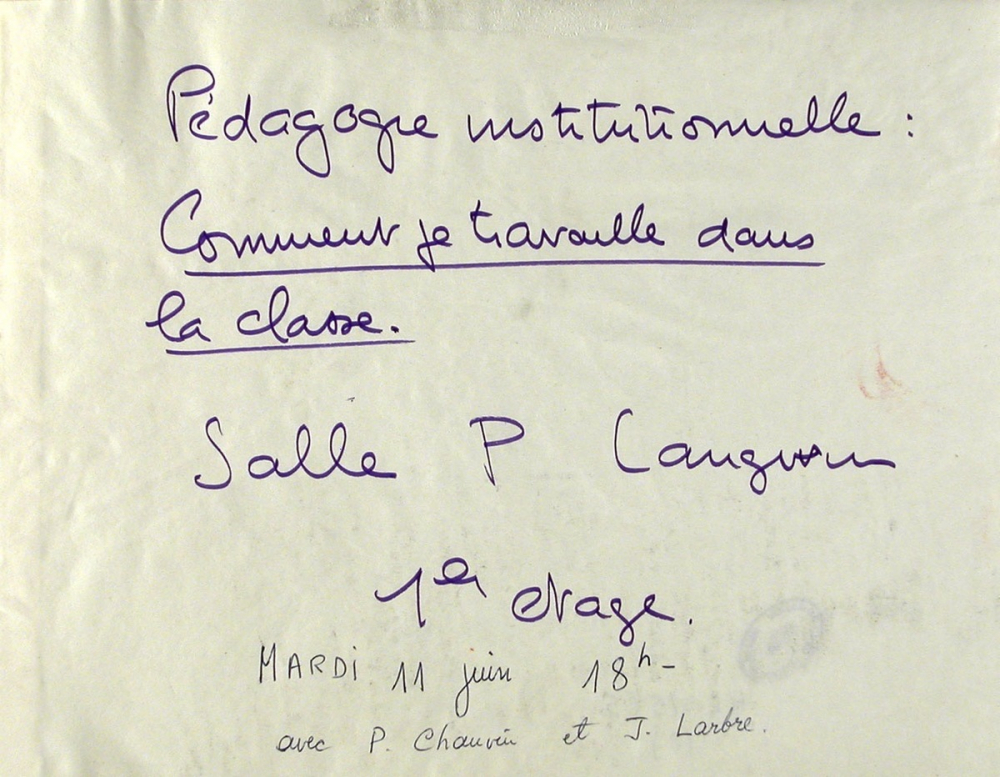 Pédagogie institutionnelle :
Comment je travaille dans
la classe.
Salle P Langevin
1er etage.
MARDI 11 juin 18h-
avec P. Chauvin et J. Larbre.